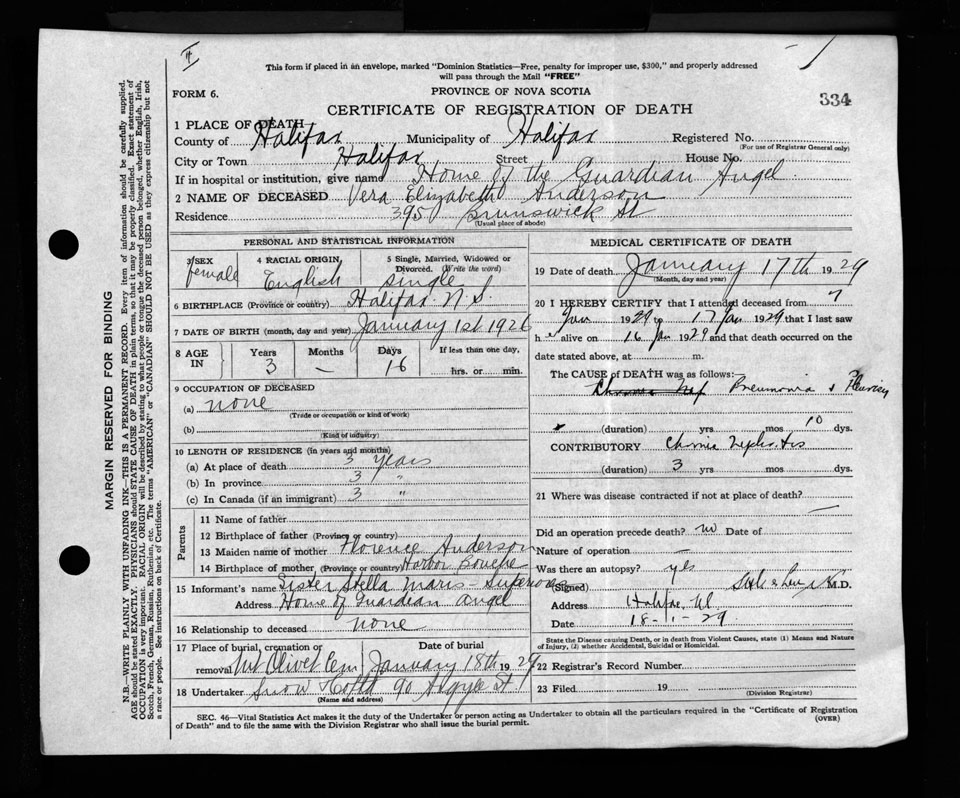 This form if placed in an envelope, marked "Dominion Statistics—Free, penalty for improper use, $300," and properly addressed
will pass through the Mail "FREE"
FORM 6.
PROVINCE OF NOVA SCOTIA
334
CERTIFICATE OF REGISTRATION OF DEATH
1 PLACE OF DEATH
County of Halifax Municipality of Halifax Registered No.
(For use of Registrar General only)
City or Town Halifax Street House No.
If in hospital or institution, give name Home of the Guardian Angel
2 NAME OF DECEASED Vera Elizabeth Anderson
Residence 395 Brunswick St
(Usual place of abode)
PERSONAL AND STATISTICAL INFORMATION
3 SEX female
4 RACIAL ORIGIN English
5 Single, Married, Widowed or
Divorced. (Write the word)
single
6 BIRTHPLACE (Province or country) Halifax N.S.
7 DATE OF BIRTH (month, day and year) January 1st 1926
8 AGE IN
Years Months Days If less than one day,
3 — 16 hrs. or min.
9 OCCUPATION OF DECEASED
(a) none
(Trade or occupation or kind of work)
(b)
(Kind of industry)
10 LENGTH OF RESIDENCE (in years and months)
(a) At place of death 3 years
(b) In province 3 "
(c) In Canada (if an immigrant) 3 "
Parents
11 Name of father
12 Birthplace of father (Province or country)
13 Maiden name of mother Florence Anderson
14 Birthplace of mother (Province or country) Harbor
15 Informant's name Sister Stella Maris - Superioress
Address Home of Guardian Angel
16 Relationship to deceased none
17 Place of burial, cremation or
removal Mt Olivet Cem
Date of burial
January 18th 1929
18 Undertaker Snow & Co Ltd 90 Argyle St
(Name and address)
MEDICAL CERTIFICATE OF DEATH
19 Date of death January 17th 1929
(Month, day and year)
20 I HEREBY CERTIFY that I attended deceased from 7
Jan 1929 to 17 Jan 1929 that I last saw
h alive on 16 Jan 1929 and that death occurred on the
date stated above, at m.
The CAUSE of DEATH was as follows:
Pneumonia & Pleurisy
(duration) yrs mos 10 dys.
CONTRIBUTORY Chronic Nephritis
(duration) 3 yrs mos dys.
21 Where was disease contracted if not at place of death?
—
Did an operation precede death? no Date of
Nature of operation —
Was there an autopsy? yes
(Signed) M.D.
Address Halifax
Date 18-1-29
State the Disease causing Death, or in death from Violent Causes, state (1) Means and Nature
of Injury, (2) whether Accidental, Suicidal or Homicidal.
22 Registrar's Record Number
23 Filed 19
(Division Registrar)
SEC. 46—Vital Statistics Act makes it the duty of the Undertaker or person acting as Undertaker to obtain all the particulars required in the "Certificate of Registration
of Death" and to file the same with the Division Registrar who shall issue the burial permit.
(OVER)
MARGIN RESERVED FOR BINDING
N.B.—WRITE PLAINLY WITH UNFADING INK—THIS IS A PERMANENT RECORD. Every item of information should be carefully supplied.
AGE should be stated EXACTLY. PHYSICIANS should STATE CAUSE OF DEATH in plain terms, so that it may be properly classified. Exact statement of
OCCUPATION is very important. RACIAL ORIGIN will be described by stating to what people or tongue the deceased person belonged, whether English, Irish,
Scotch, French, German, Russian, Ruthenian, etc. The terms "AMERICAN" or "CANADIAN" SHOULD NOT BE USED as they express citizenship but not
a race or people. See instructions on back of Certificate.